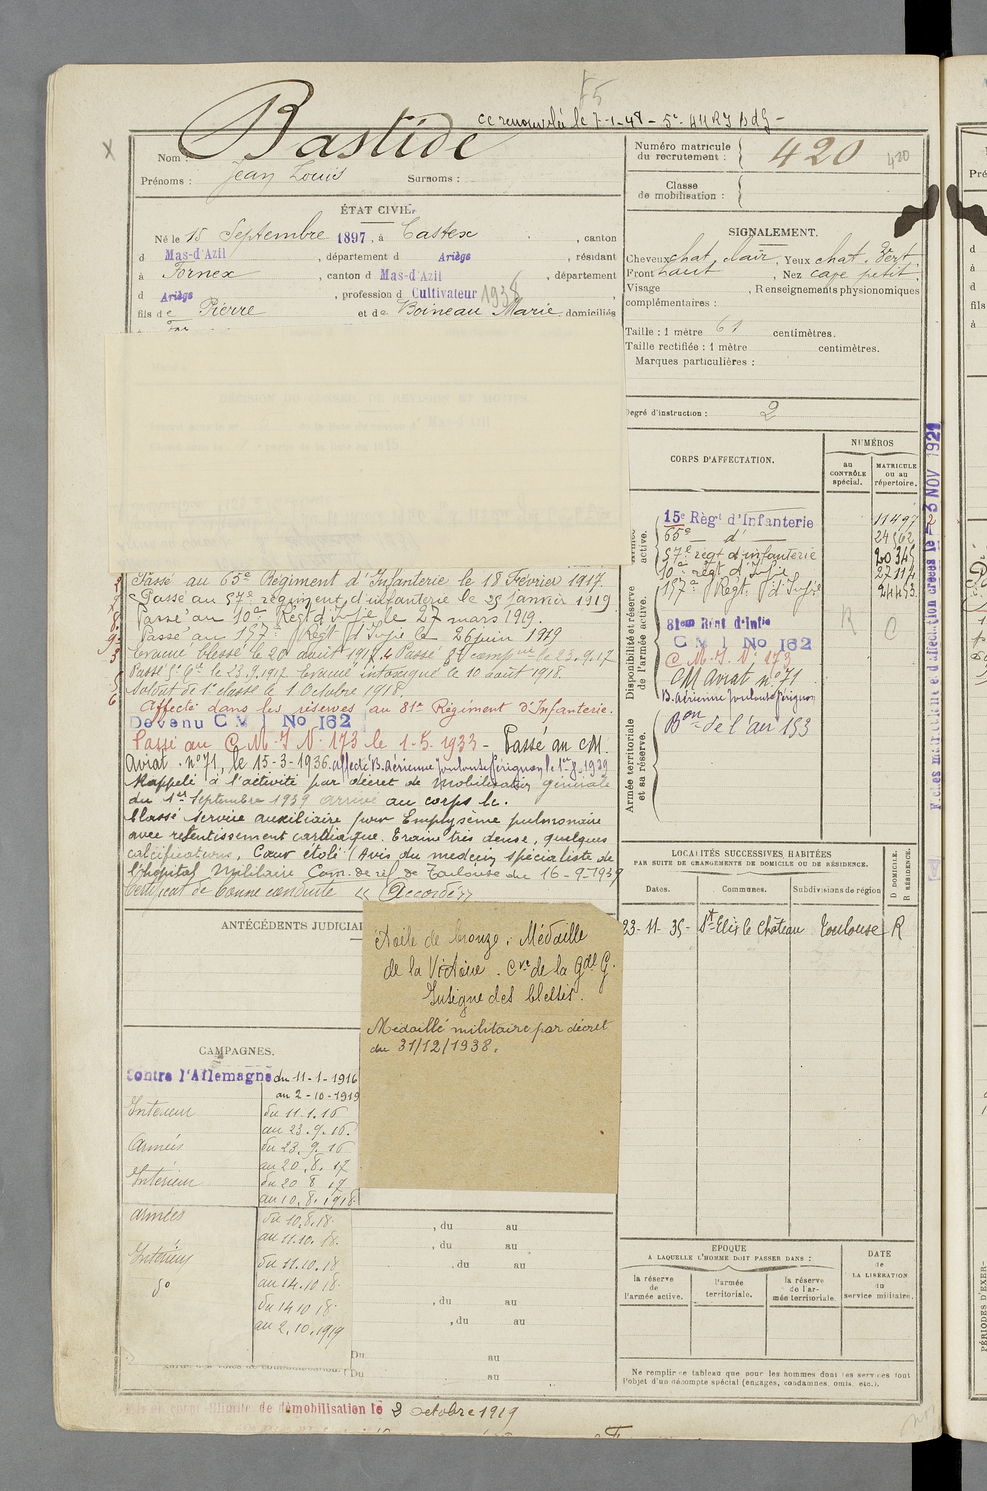 75
CC renouvelé le 7-1-48 - 5e. 44 RI BdG -
Bastide
Nom :
Prénoms : Jean Louis Surnoms :
Numéro matricule
du recrutement : 420
420
Classe
de mobilisation :
ÉTAT CIVIL.
Né le 15 Septembre 1897, à Castex, canton
d Mas-d'Azil, département d Ariège, résidant
à Fornex, canton d Mas-d'Azil, département
d Ariège, profession d Cultivateur 1938
fils de Pierre et de Boineau Marie, domiciliés
SIGNALEMENT.
Cheveux chat. clair, Yeux chat. vert.
Front haut, Nez cave petit.
Visage , Renseignements physionomiques
complémentaires :
Taille : 1 mètre 61 centimètres.
Taille rectifiée : 1 mètre centimètres.
Marques particulières :
Degré d'instruction : 2
CORPS D'AFFECTATION.
NUMÉROS
au
CONTRÔLE
spécial.
MATRICULE
ou au
répertoire.
Armée
active.
15e Régt d'Infanterie 11497
65e — d° — 24562
57e régt d'infanterie 20345
10e régt d'Infie 27114
157e Régt. d'Infie 24453
Disponibilité et réserve
de l'armée active.
81em Rémt d'Infie
C M I No 162
C. M. I. N° 173
CM Aviat n° 71
B. Aérienne Toulouse Pérignon
R C
Armée territoriale
et sa réserve.
Bon de l'air 153
3 NOV 1921
Passé au 65e Régiment d'Infanterie le 18 Février 1917
Passé au 57e régiment d'infanterie le 25 Janvier 1919
Passé au 10e Régt d'Infie le 27 mars 1919.
Passé au 157e Régt d'Infie le 26 juin 1919
Evacué blessé le 20 août 1917. Passé 8e compnie le 23.9.17
Passé le 23.9.1917 Evacué intoxiqué le 10 août 1918.
Soldat de 1e classe le 1 Octobre 1918.
Affecté dans les réserves au 81e Régiment d'Infanterie.
Devenu C M I No 162
Passé au C. M. I N° 173 le 1-5. 1933 - Passé au CM.
Aviat. n° 71, le 15-3-1936. affecté B. Aérienne Toulouse Pérignon le 1er 8. 1939
Rappelé à l'activité par décret de mobilisation générale
du 1er Septembre 1939 arrivé au corps le.
Classé service auxiliaire pour Emphysème pulmonaire
avec retentissement cardiaque. Trame très dense, quelques
calcifications, Cœur étalé (Avis du médecin spécialiste de
l'hôpital Militaire Com. de réf de Toulouse du 16-9-1939
Certificat de bonne conduite « Accordé »
ANTÉCÉDENTS JUDICIAI
étoile de bronze. Médaille
de la Victoire. Cve de la Gde G.
Insigne des blessés.
Médaillé militaire par décret
du 31/12/1938.
LOCALITÉS SUCCESSIVES HABITÉES
PAR SUITE DE CHANGEMENTS DE DOMICILE OU DE RÉSIDENCE.
D DOMICILE.
R RÉSIDENCE.
Dates. Communes. Subdivisions de région
23-11-35- St-Elix le Château Toulouse R
CAMPAGNES.
Contre l'Allemagne du 11-1-1916
au 2-10-1919
Intérieur du 11.1.16
au 23.9.16.
Armées du 23.9.16
au 20.8.17
Intérieur du 20 8 17
au 10.8.1918
armées du 10.8.18.
au 11.10.18.
Intérieur du 11.10.18
au 14.10.18
d° du 14 10 18
au 2.10.1919
, du au
, du au
, du au
, du au
, du au
Du au
Du au
ÉPOQUE
A LAQUELLE L'HOMME DOIT PASSER DANS :
la réserve
de
l'armée active.
l'armée
territoriale.
la réserve
de l'ar-
mée territoriale.
DATE
de
LA LIBÉRATION
du
service militaire.
Ne remplir ce tableau que pour les hommes dont les services font
l'objet d'un décompte spécial (engagés, condamnés, omis, etc.).
illimité de démobilisation le 2 octobre 1919